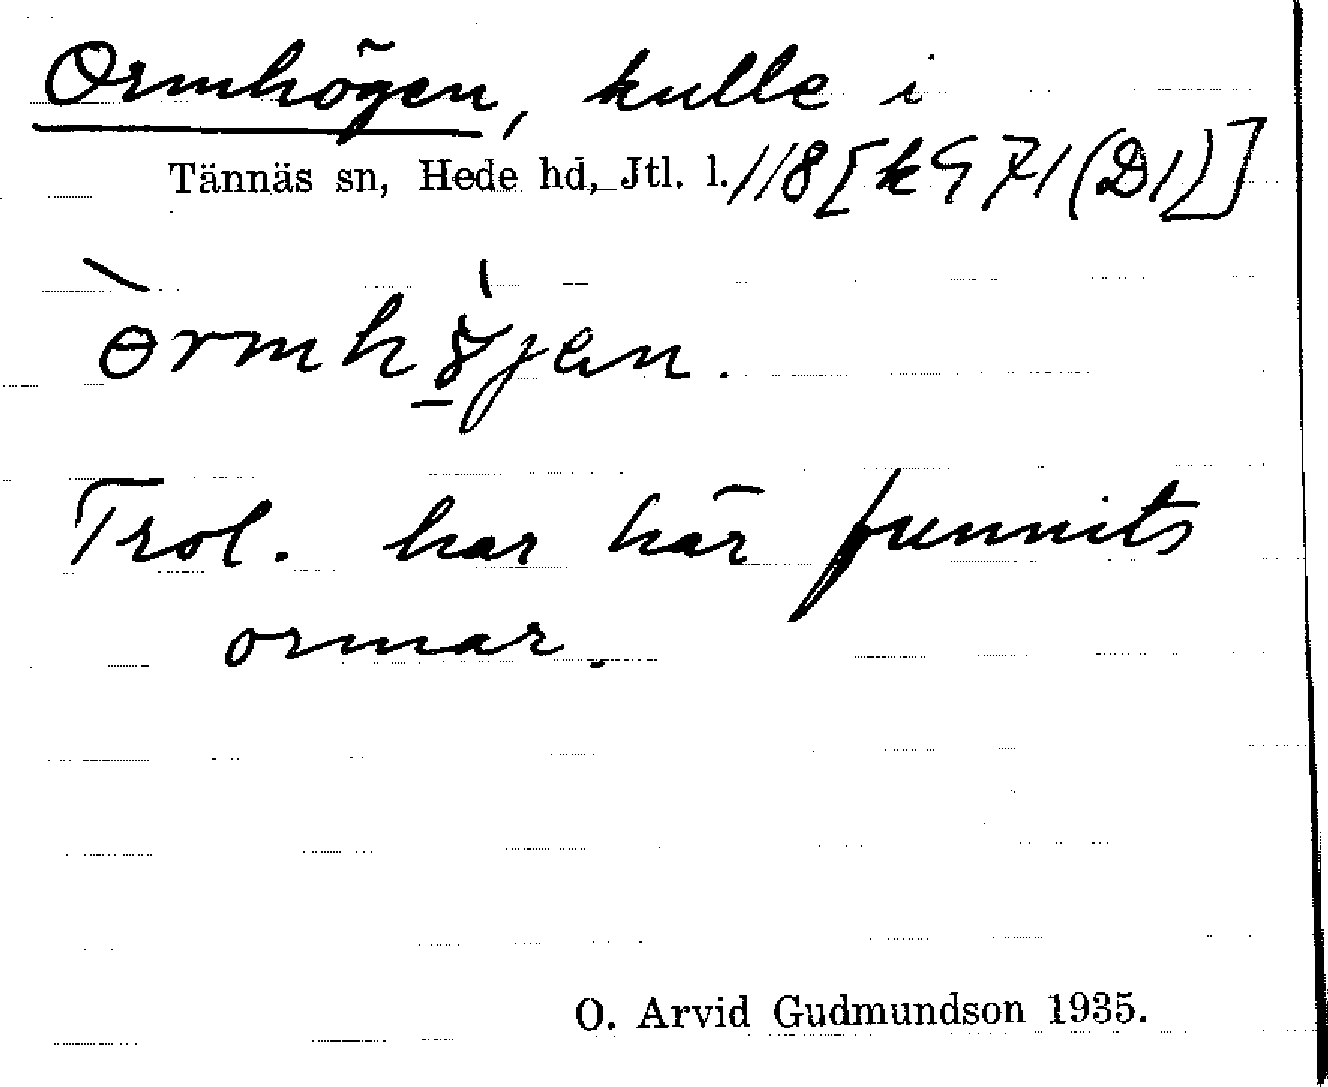 Ormhögen, kulle i
Tännäs sn, Hede hd, Jtl. l. 118 [k 971 (D1)]
Trol. har här funnits
ormar.
O. Arvid Gudmundson 1935.